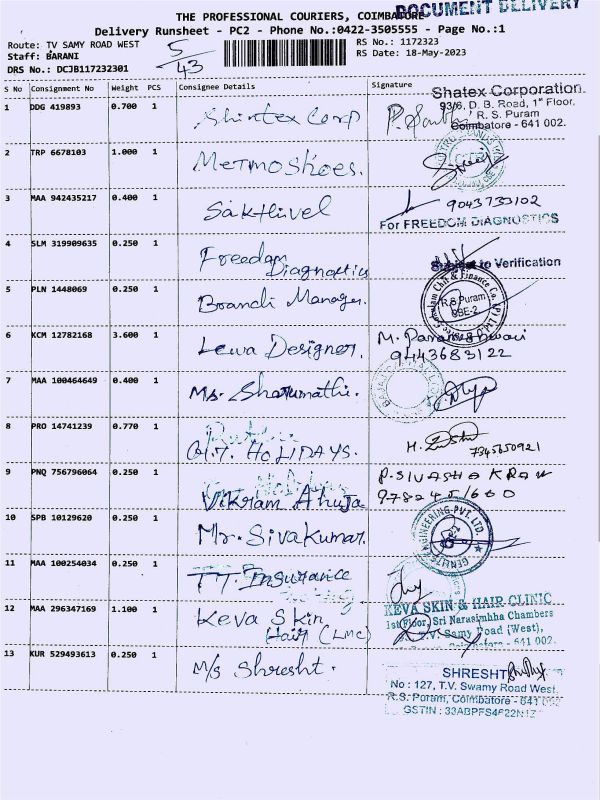 DOCUMENT DELIVERY
THE PROFESSIONAL COURIERS, COIMBATORE
Delivery Runsheet - PC2 - Phone No.:0422-3505555 - Page No.:1
Route: TV SAMY ROAD WEST
Staff: BARANI
DRS No.: DCJB117232301
5/43
RS No.: 1172323
RS Date: 18-May-2023
S No Consignment No Weight PCS Consignee Details Signature
1 DDG 419893 0.700 1 Shintex Corp
Shatex Corporation.
93/6, D. B. Road, 1st Floor,
R. S. Puram
Coimbatore - 641 002.
2 TRP 6678103 1.000 1 Metmoshoes.
3 MAA 942435217 0.400 1 Sakthivel
9043733102
For FREEDOM DIAGNOSTICS
4 SLM 319909635 0.250 1 Freedom
Diagnostics
Subject to Verification
5 PLN 1448069 0.250 1 Branch Manager.
R.S.Puram
CBE-2
6 KCM 12782168 3.600 1 Lewa Designer.
M. Parameshwari
9443683122
7 MAA 100464649 0.400 1 Ms. Sharumathi.
8 PRO 14741239 0.770 1 G.T. HOLIDAYS.
7345650921
9 PNQ 756796064 0.250 1 Vikram Ahuja
P. SIVASHAKRAN
9782451600
10 SPB 10129620 0.250 1 Mr. Sivakumar.
ENGINEERING PVT. LTD.
11 MAA 100254034 0.250 1 TT. Insurance
12 MAA 296347169 1.100 1 Keva Skin
Hair (LMC)
KEVA SKIN & HAIR CLINIC
1st Floor, Sri Narasimhha Chambers
T.V. Samy Road (West),
Coimbatore - 641 002.
13 KUR 529493613 0.250 1 M/s Shresht.
SHRESHT
No : 127, T.V. Swamy Road West.
R.S. Puram, Coimbatore - 641
GSTIN :